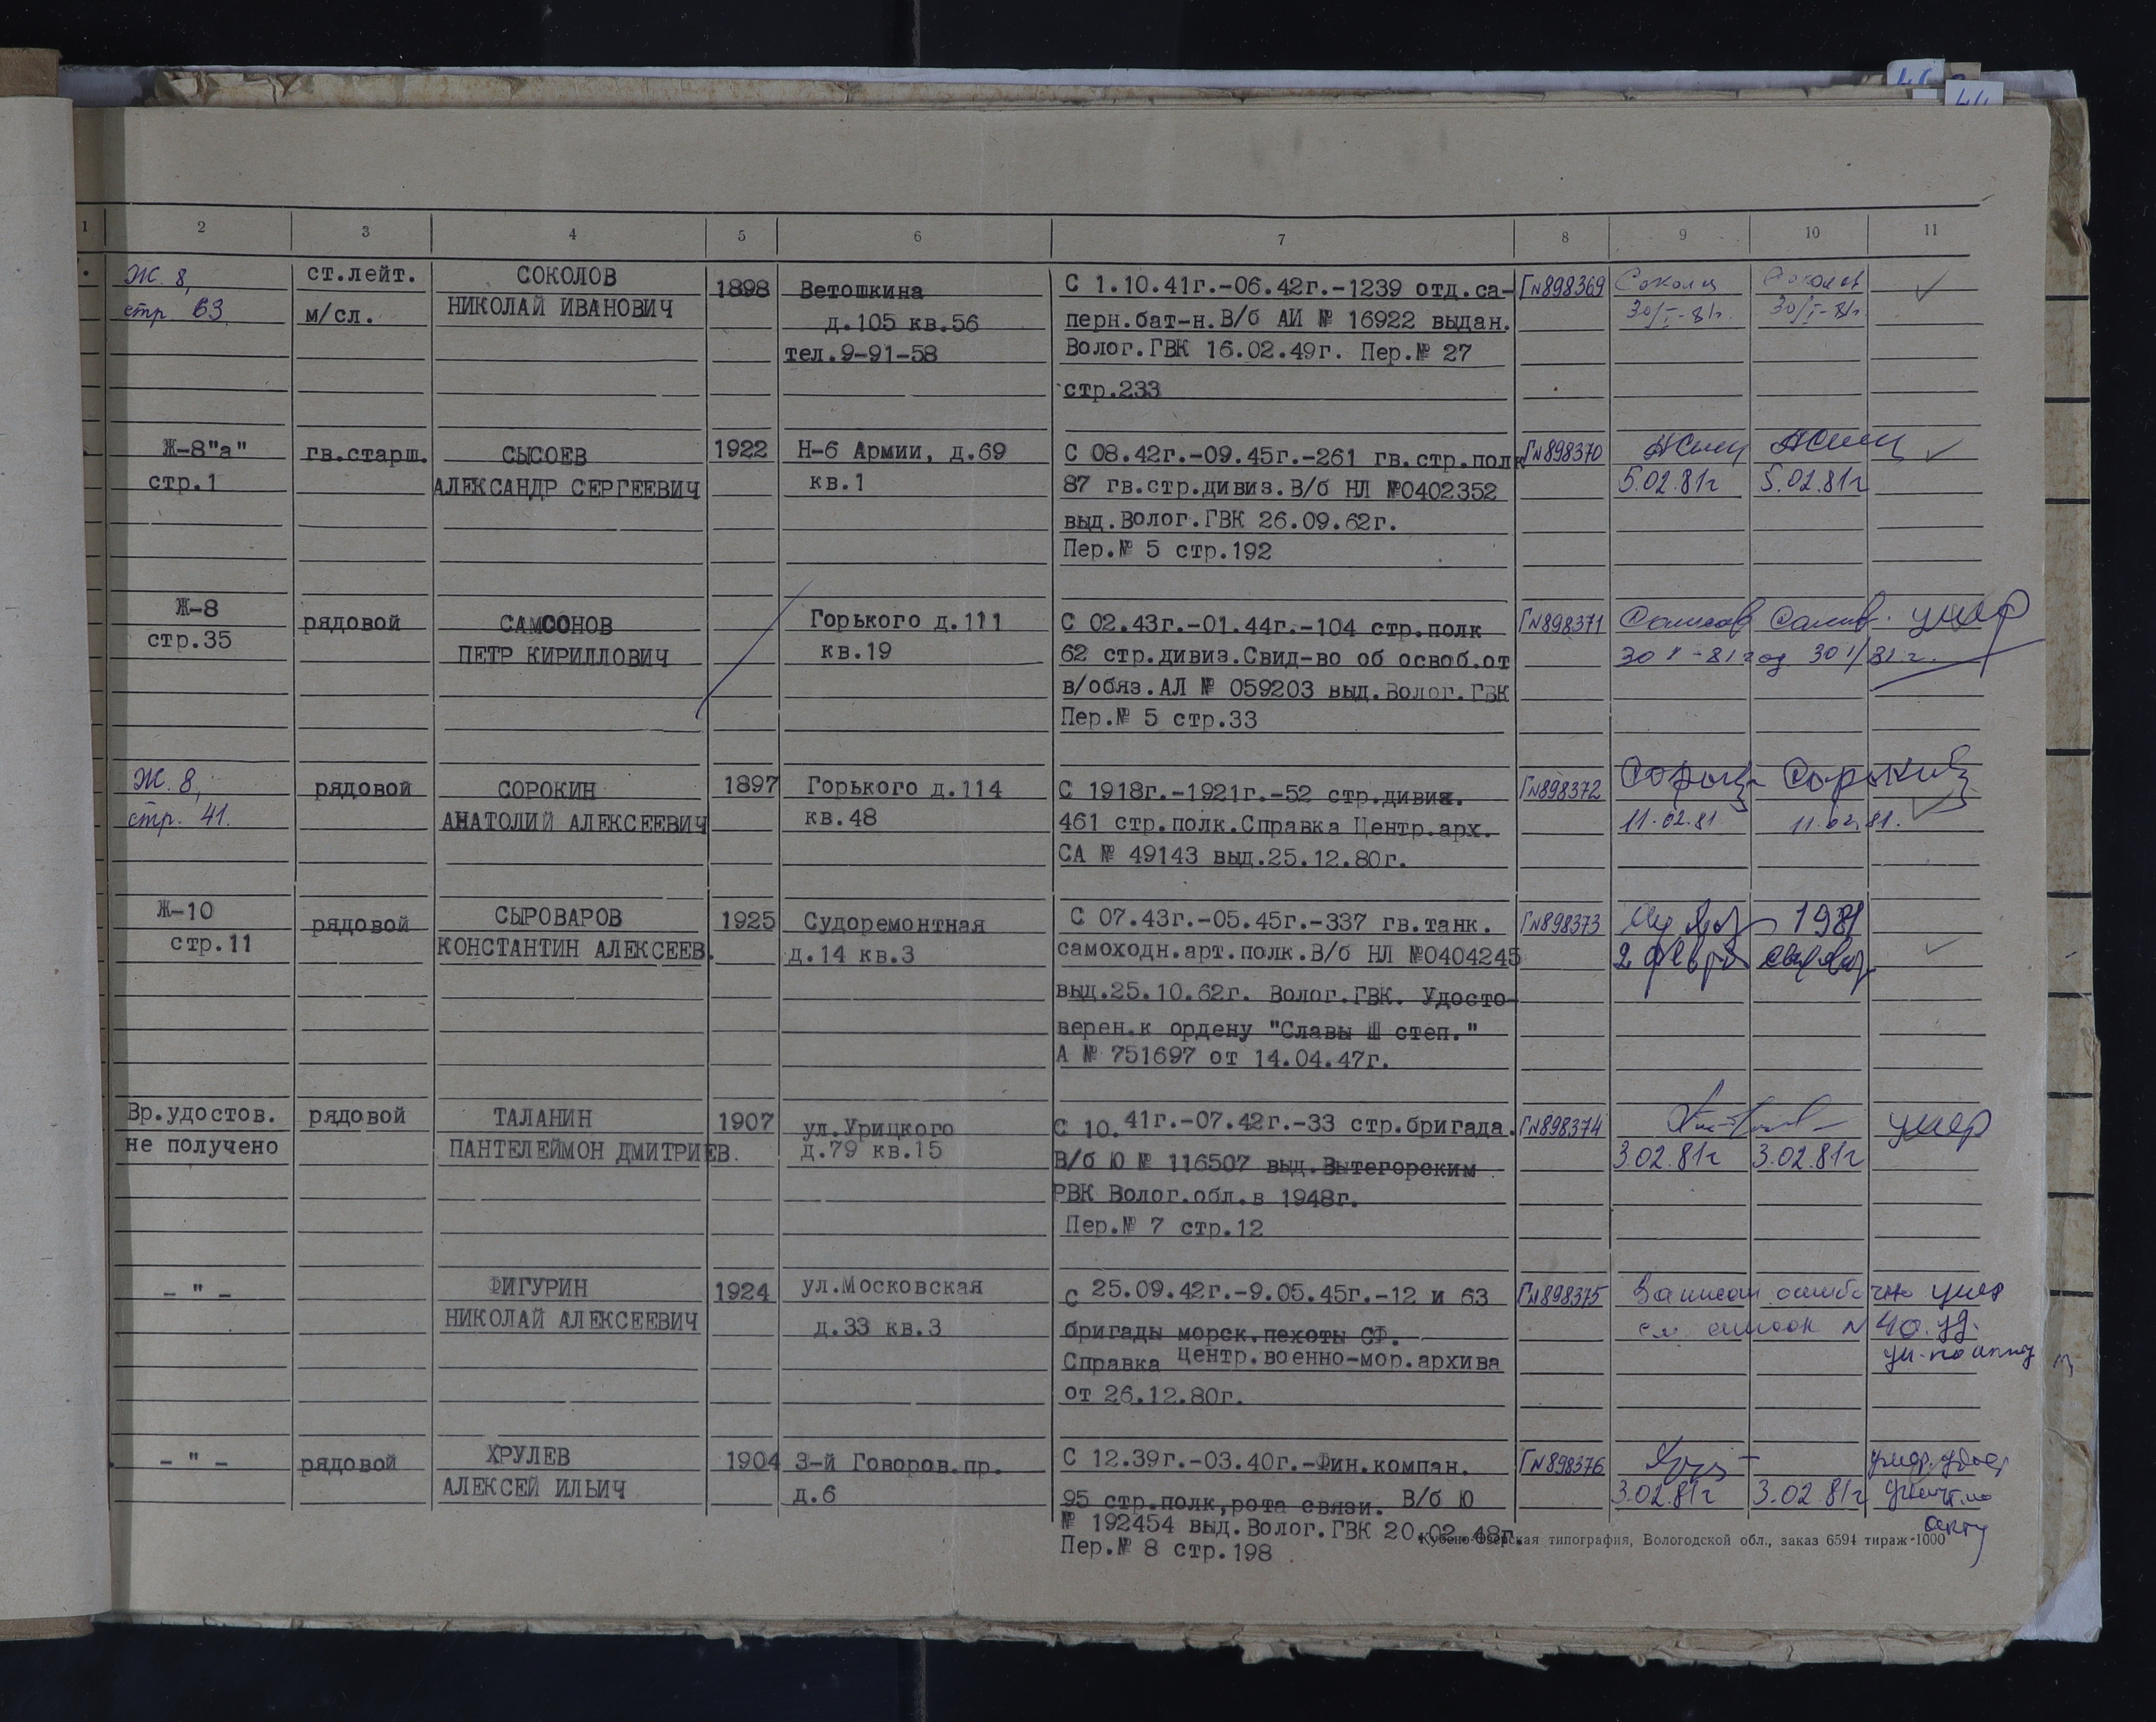 1 2 3 4 5 6 7 8 9 10 11
Ж. 8, ст.лейт. СОКОЛОВ 1898 Ветошкина С 1.10.41г.-06.42г.-1239 отд.са- Г№898369 Соколов Соколов
стр 63 м/сл. НИКОЛАЙ ИВАНОВИЧ д.105 кв.56 перн.бат-н.В/б АИ № 16922 выдан. 30/I-81г. 30/I-81г.
тел.9-91-58 Волог.ГВК 16.02.49г. Пер.№ 27
стр.233
Ж-8"а" гв.старш. СЫСОЕВ 1922 Н-6 Армии, д.69 С 08.42г.-09.45г.-261 гв.стр.полк Г№898370
стр.1 АЛЕКСАНДР СЕРГЕЕВИЧ кв.1 87 гв.стр.дивиз.В/б НЛ №0402352 5.02.81г 5.02.81г
выд.Волог.ГВК 26.09.62г.
Пер.№ 5 стр.192
Ж-8 рядовой САМСОНОВ Горького д.111 С 02.43г.-01.44г.-104 стр.полк Г№898371 умер
стр.35 ПЕТР КИРИЛЛОВИЧ кв.19 62 стр.дивиз.Свид-во об освоб.от 30 I-81год 30 I/81г.
в/обяз.АЛ № 059203 выд.Волог.ГВК
Пер.№ 5 стр.33
Ж. 8, рядовой СОРОКИН 1897 Горького д.114 С 1918г.-1921г.-52 стр.дивиз. Г№898372 Сорокин Сорокин
стр. 41. АНАТОЛИЙ АЛЕКСЕЕВИЧ кв.48 461 стр.полк.Справка Центр.арх. 11.02.81 11.02.81.
СА № 49143 выд.25.12.80г.
Ж-10 рядовой СЫРОВАРОВ 1925 Судоремонтная С 07.43г.-05.45г.-337 гв.танк. Г№898373 1981
стр.11 КОНСТАНТИН АЛЕКСЕЕВ. д.14 кв.3 самоходн.арт.полк.В/б НЛ №0404245 2 февр
выд.25.10.62г. Волог.ГВК. Удосто-
верен.к ордену "Славы Ш степ."
А № 751697 от 14.04.47г.
Вр.удостов. рядовой ТАЛАНИН 1907 ул.Урицкого С 10.41г.-07.42г.-33 стр.бригада. Г№898374 умер
не получено ПАНТЕЛЕЙМОН ДМИТРИЕВ. д.79 кв.15 В/б Ю № 116507 выд.Вытегорским 3.02.81г 3.02.81г
РВК Волог.обл.в 1948г.
Пер.№ 7 стр.12
- " - ФИГУРИН 1924 ул.Московская С 25.09.42г.-9.05.45г.-12 и 63 Г№898375 Записан ошибочно умер
НИКОЛАЙ АЛЕКСЕЕВИЧ д.33 кв.3 бригады морск.пехоты СФ. см. список № 40. уд.
Справка Центр.военно-мор.архива ун. по акту
от 26.12.80г.
- " - рядовой ХРУЛЕВ 1904 3-й Говоров.пр. С 12.39г.-03.40г.-Фин.компан. Г№898376 умер. удост
АЛЕКСЕЙ ИЛЬИЧ д.6 95 стр.полк,рота связи. В/б Ю 3.02.81г 3.02.81г уничт. по
№ 192454 выд.Волог.ГВК 20.02.48г. акту
Кубено-Озерская типография, Вологодской обл., заказ 6594 тираж-1000
Пер.№ 8 стр.198